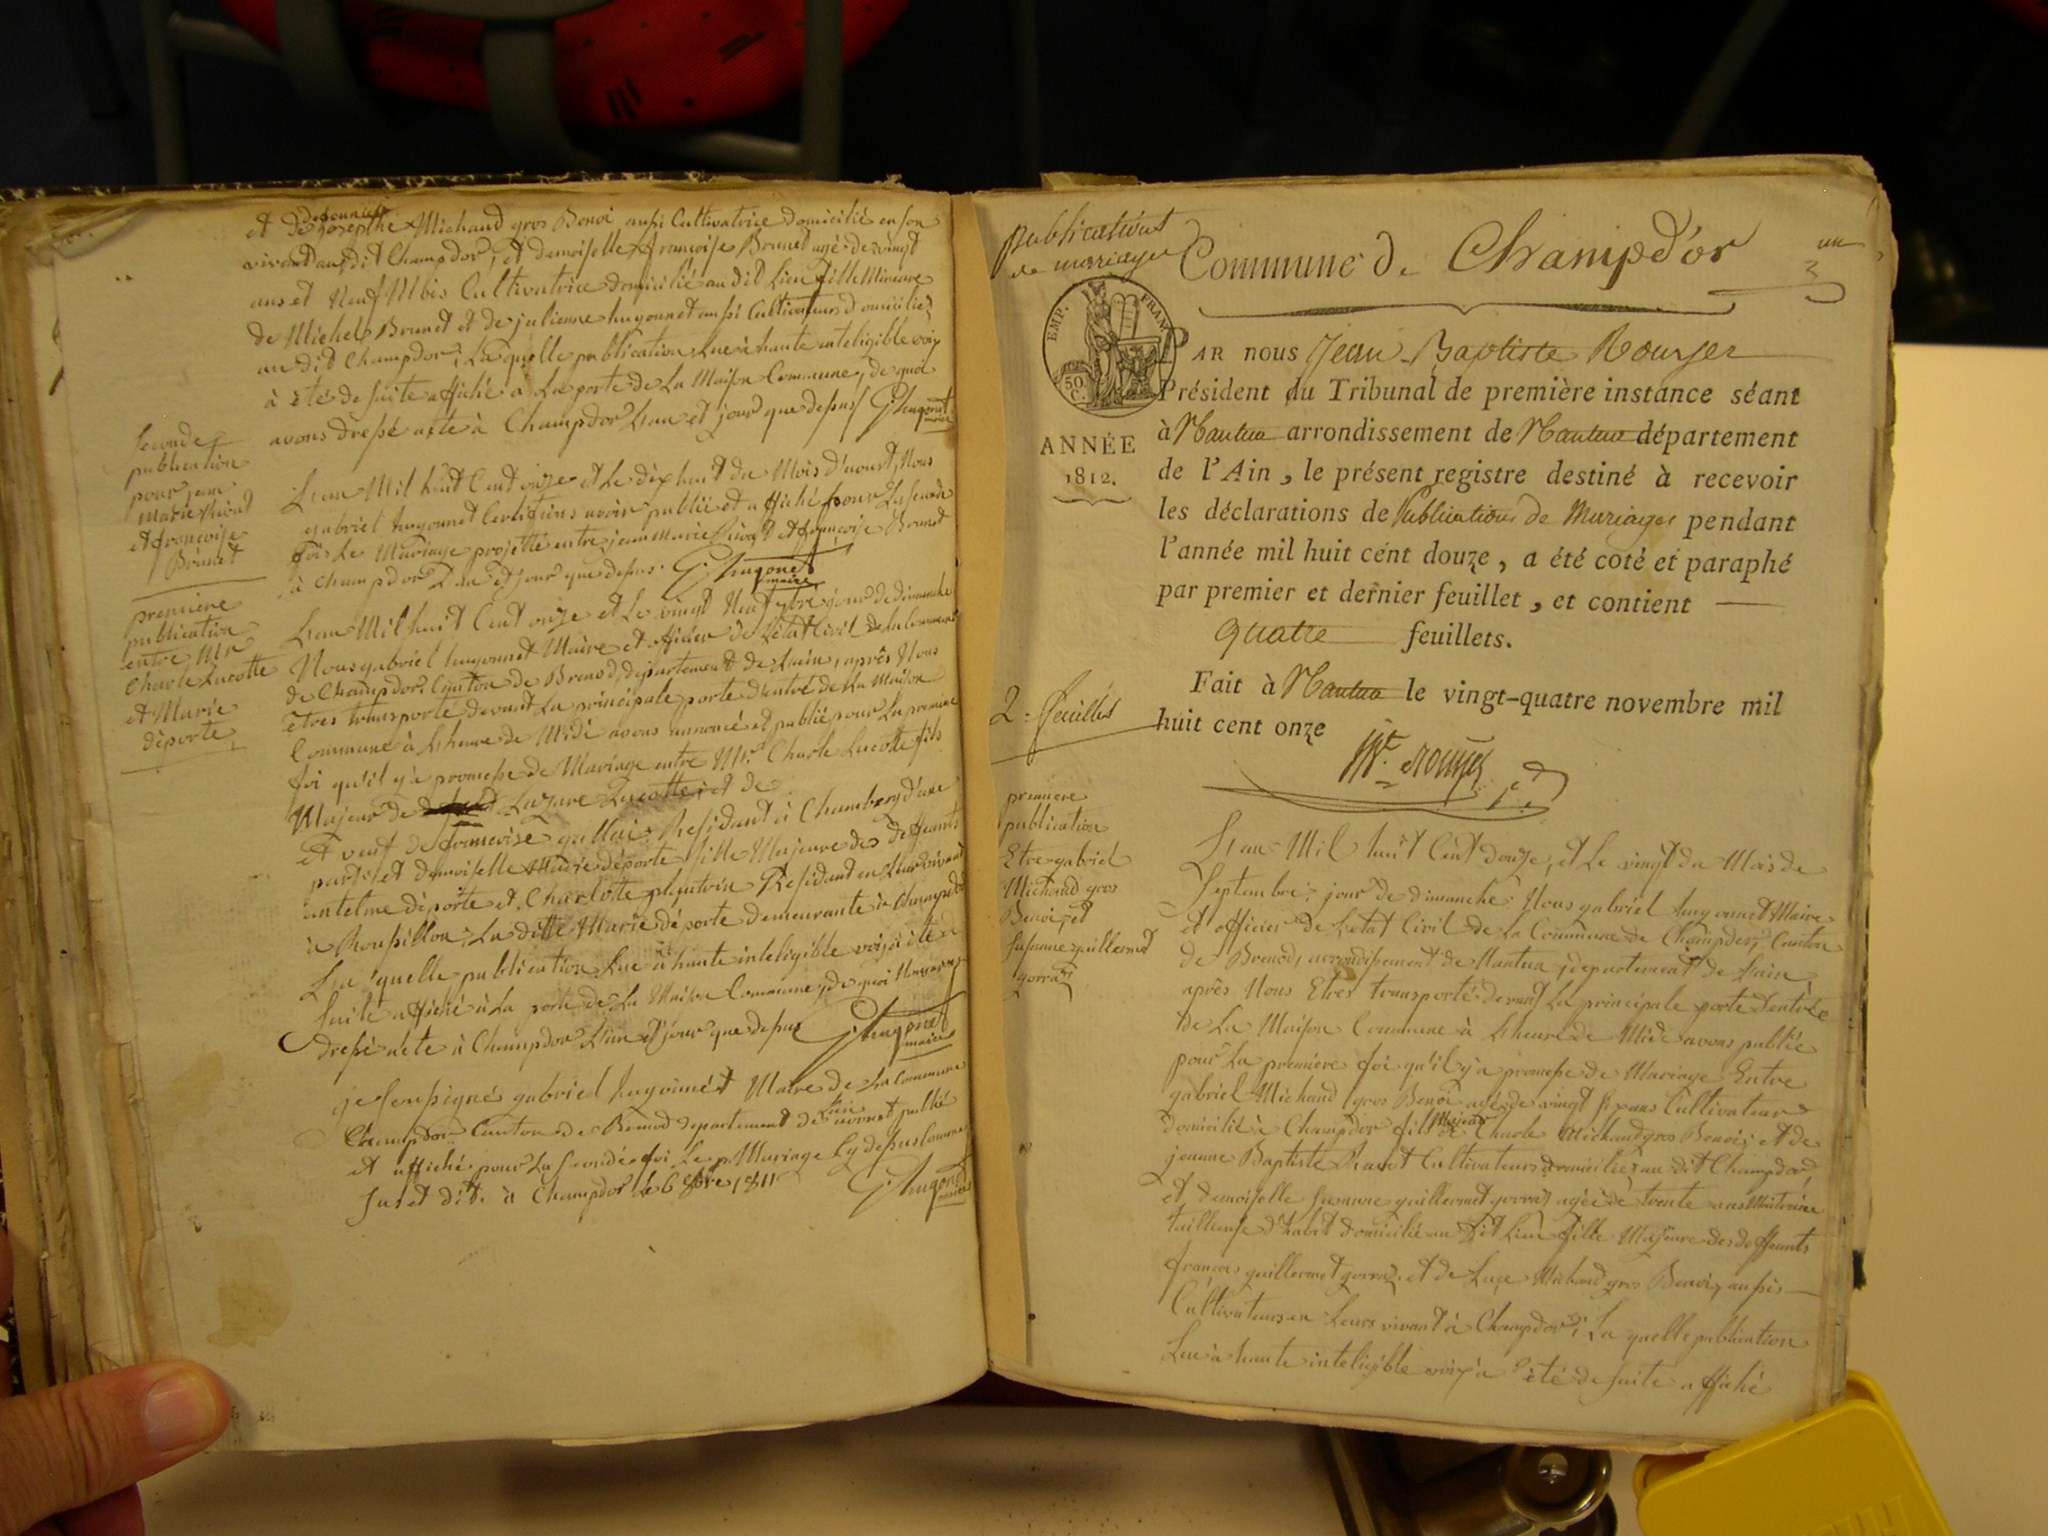 et de defunte Josepthe Michaud gros Benoi aussi Cultivatrice domicilié en son
vivant au dit Champdor, et damoiselle françoise Brunet agé de vingt
ans et Neuf Mois Cultivatrice domicilié au dit Lieu fille Mineure
de Michel Brunet et de julienne hugonnet aussi Cultivateurs domiciliez
au dit Champdor; La quelle publication Lue à haute inteligible voix
à été de suite affiché a La porte de La Maison Commune, de quoi
avons dressé acte à Champdor L'an et jour que dessus G. hugonet
maire
Seconde
publication
pour jean
Marie
et françoise
Brunet
L'an Mil huit Cent onze et Le dix huit du Mois d'aoust, Nous
gabriel hugonnet Certifions avoir publié et affiché pour La seconde
fois Le Mariage projetté entre jean Marie et françoise Brunet
à Champdor L'an et jour que dessus. G. hugonet
maire
première
publication
entre Mr
Charle Lucotte
et Marie
déporte
L'an Mil huit Cent onze et Le vingt Neuf 7bre jour de dimanche
Nous gabriel hugonnet Maire et officier de L'état Civil de la Commune
de Champdor Canton de Brenod, département de L'ain, après Nous
êtres transporté devant La principale porte d'entré de La Maison
Commune à L'heure de Midé avons annoncé et publié pour La premiere
foi qu'il y'a promesse de Mariage entre Mr Charle Lucotte fils
Majeur de Lazare Lucotte; et de
et veuf de françoise Residant à Chambery d'une
part; et demoiselle Marie déporte fille Majeure des deffeunts
antelme déporte et Charlotte Residant en Leur vivant
à Roussillon; La ditte Marie déporte demeurante à Champdor
La quelle publication Lue à haute inteligible voix à été de
suite affiché à La porte de La Maison Commune, de quoi Nous avons
dressé acte à Champdor L'an et jour que dessus G. hugonet
maire
je soussigné gabriel hugonnet Maire de La Commune
Champdor Canton de Brenod departement de L'ain avoir publié
et affiché pour La seconde foi Le Mariage Cy dessus
fut et dit. à Champdor Le 6 8bre 1811 G. hugonet
maire
publications
de mariages
Commune de Champd'or
un
EMP. FRAN.
50 C.
ANNÉE
1812.
PAR NOUS Jean Baptiste Rouyer
Président du Tribunal de première instance séant
à Nantua arrondissement de Nantua département
de l'Ain, le présent registre destiné à recevoir
les déclarations de Publications de Mariages pendant
l'année mil huit cent douze, a été coté et paraphé
par premier et dernier feuillet, et contient
quatre feuillets.
Fait à Nantua le vingt-quatre novembre mil
huit cent onze
2. feuilles
première
publication
Etre gabriel
Michaud gros
Benoi, et
Susanne guillermet
gorraz
L'an Mil huit Cent douze, et Le vingt du Mois de
Septembre, jour de dimanche Nous gabriel hugonnet Maire
et officier de L'etat Civil de La Commune de Champdor, Canton
de Brenod, arrondissement de Nantua, departement de L'ain,
après Nous Etres transporté devant La principale porte d'entrée
de La Maison Commune à L'heure de Midé avons publié
pour La premiere foi qu'il y'a promesse de Mariage Entre
gabriel Michaud gros Benoi agé de vingt six ans Cultivateur
domicilié à Champdor fils Majeur de Charle Michaud gros Benoi; et de
jeanne Baptiste Cultivateurs domiciliés au dit Champdor,
et demoiselle susanne guillermet gorraz agée de trente ans
tailleuse d'habit domicilié au dit Lieu fille Majeure des deffeunts
françois guillermet gorraz, et de Luce Michaud gros Benoi, aussi
Cultivateurs en Leurs vivant à Champdor; La quelle publication
Lue à haute inteligible voix à été de suite affiché